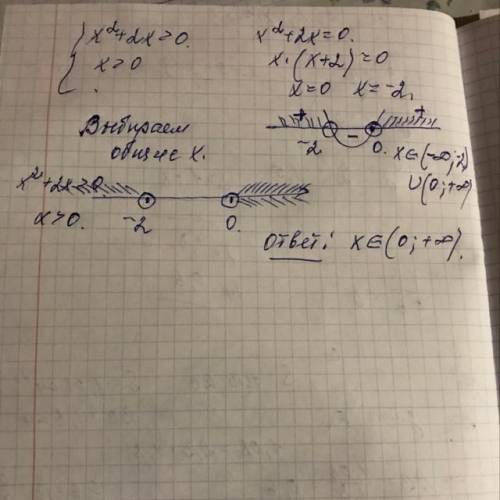 x²+2x>0.
x>0
x²+2x=0.
x·(x+2)=0
x=0 x=-2.
+ - +
-2 0. x∈(-∞;2)
∪(0;+∞)
Выбираем
общие x.
x²+2x>0.
x>0. -2 0.
Ответ: x∈(0;+∞).